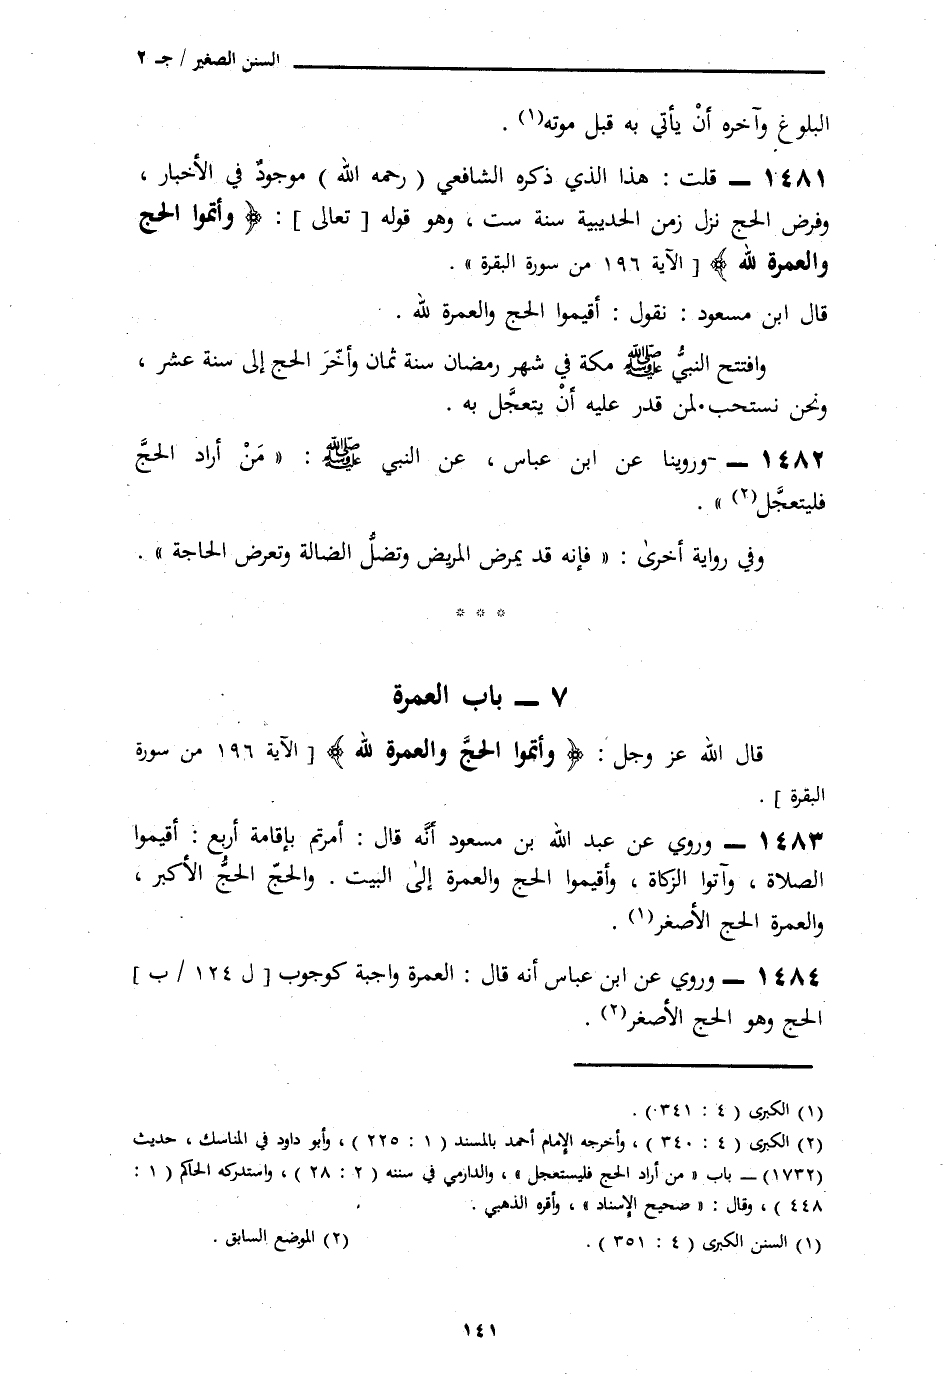 السنن الصغير / جـ ٢
البلوغ وآخره أنْ يأتي به قبل موته(١) .
١٤٨١ ــ قلت : هذا الذي ذكره الشافعي ( رحمه الله ) موجودٌ في الأخبار ،
وفرض الحج نزل زمن الحديبية سنة ست ، وهو قوله [ تعالى ] : ﴿ وأتموا الحج
والعمرة لله ﴾ [ الآية ١٩٦ من سورة البقرة » .
قال ابن مسعود : نقول : أقيموا الحج والعمرة لله .
وافتتح النبيُّ ﷺ مكة في شهر رمضان سنة ثمان وأخّرَ الحج إلى سنة عشر ،
ونحن نستحب لمن قدر عليه أنْ يتعجَّل به .
١٤٨٢ ــ وروينا عن ابن عباس ، عن النبي ﷺ : « مَنْ أراد الحجَّ
فليتعجَّل(٢) » .
وفي رواية أخرىٰ : « فإنه قد يمرض المريض وتضلُّ الضالة وتعرض الحاجة » .
* * *
٧ ــ باب العمرة
قال الله عز وجل : ﴿ وأتموا الحجَّ والعمرة لله ﴾ [ الآية ١٩٦ من سورة
البقرة ] .
١٤٨٣ ــ وروي عن عبد الله بن مسعود أنَّه قال : أمرتم بإقامة أربع : أقيموا
الصلاة ، وآتوا الزكاة ، وأقيموا الحج والعمرة إلىٰ البيت . والحجّ الحجُّ الأكبر ،
والعمرة الحج الأصغر(١) .
١٤٨٤ ــ وروي عن ابن عباس أنه قال : العمرة واجبة كوجوب [ ل ١٢٤ / ب ]
الحج وهو الحج الأصغر(٢) .
(١) الكبرى ( ٤ : ٣٤١) .
(٢) الكبرى ( ٤ : ٣٤٠ ) ، وأخرجه الإمام أحمد بالمسند ( ١ : ٢٢٥ ) ، وأبو داود في المناسك ، حديث
(١٧٣٢) ــ باب « من أراد الحج فليستعجل » ، والدارمي في سننه ( ٢ : ٢٨ ) ، واستدركه الحاكم ( ١ :
٤٤٨ ) ، وقال : « صحيح الإسناد » ، وأقره الذهبي .
(١) السنن الكبرى ( ٤ : ٣٥١ ) . (٢) الموضع السابق .
١٤١